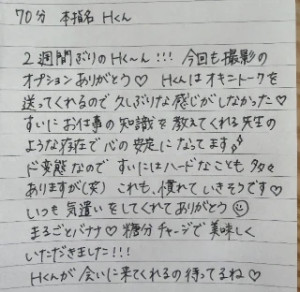 70分 本指名 Hくん
2週間ぶりのHく〜ん!!! 今回も撮影の
オプションありがとう♡ Hくんはオキニトークを
送ってくれるので久しぶりな感じがしなかった♡
すいにお仕事の知識を教えてくれる先生の
ような存在で心の安定になってます
ド変態なので すいにはハードなことも多々
ありますが(笑) これも、慣れていきそうです♡
いつも気遣いをしてくれてありがとう☺
まるごとバナナ♡ 糖分チャージで美味しく
いただきました!!!
Hくんが会いに来てくれるの待ってるね♡